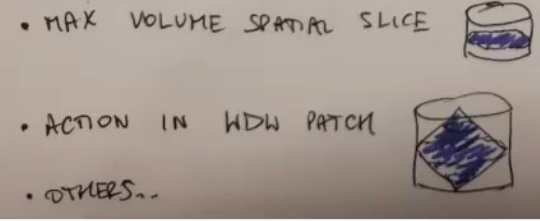 • MAX VOLUME SPATIAL SLICE
• ACTION IN WDW PATCH
• OTHERS...